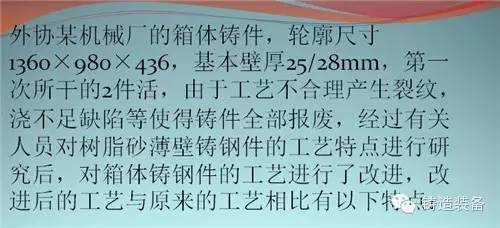 外协某机械厂的箱体铸件，轮廓尺寸
1360×980×436，基本壁厚25/28mm，第一
次所干的2件活，由于工艺不合理产生裂纹，
浇不足缺陷等使得铸件全部报废，经过有关
人员对树脂砂薄壁铸钢件的工艺特点进行研
究后，对箱体铸钢件的工艺进行了改进，改
进后的工艺与原来的工艺相比有以下特点
铸造装备